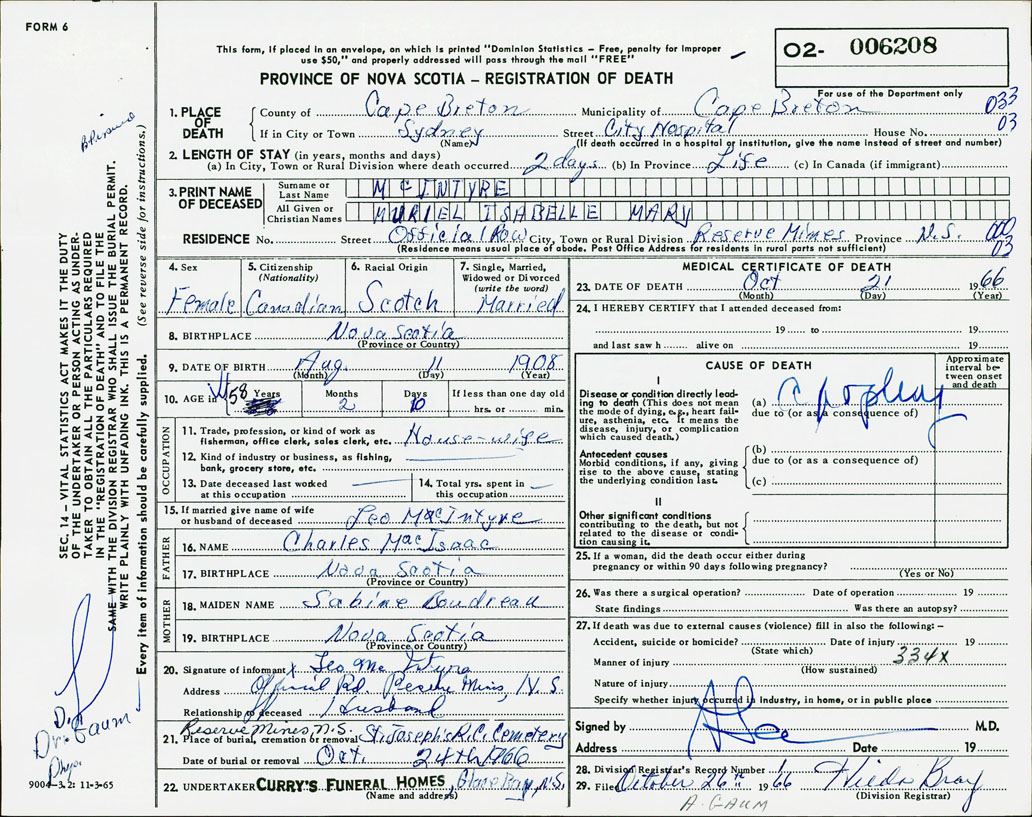 FORM 6
This form, if placed in an envelope, on which is printed "Dominion Statistics – Free, penalty for improper
use $50," and properly addressed will pass through the mail "FREE"
O2- 006208
PROVINCE OF NOVA SCOTIA – REGISTRATION OF DEATH
For use of the Department only
1. PLACE OF DEATH County of Cape Breton Municipality of Cape Breton 033
If in City or Town Sydney Street City Hospital House No. 03
(Name) (If death occurred in a hospital or institution, give the name instead of street and number)
2. LENGTH OF STAY (in years, months and days)
(a) In City, Town or Rural Division where death occurred 2 days (b) In Province Life (c) In Canada (if immigrant)
3. PRINT NAME OF DECEASED Surname or Last Name McINTYRE
All Given or Christian Names MURIEL ISABELLE MARY
RESIDENCE No. Street Official Row City, Town or Rural Division Reserve Mines Province N.S. 000
(Residence means usual place of abode. Post Office Address for residents in rural parts not sufficient) 03
4. Sex Female
5. Citizenship (Nationality) Canadian
6. Racial Origin Scotch
7. Single, Married, Widowed or Divorced (write the word) Married
8. BIRTHPLACE Nova Scotia
(Province or Country)
9. DATE OF BIRTH Aug. 11 1908
(Month) (Day) (Year)
10. AGE in 58 Years Months 2 Days 10 If less than one day old
hrs. or min.
OCCUPATION
11. Trade, profession, or kind of work as
fisherman, office clerk, sales clerk, etc. House-wife
12. Kind of industry or business, as fishing,
bank, grocery store, etc.
13. Date deceased last worked
at this occupation
14. Total yrs. spent in
this occupation
15. If married give name of wife
or husband of deceased Leo MacIntyre
FATHER
16. NAME Charles MacIsaac
17. BIRTHPLACE Nova Scotia
(Province or Country)
MOTHER
18. MAIDEN NAME Sabine Boudreau
19. BIRTHPLACE Nova Scotia
(Province or Country)
20. Signature of informant x Leo Mc Intyre
Address Official Rd. Reserve Mines, N.S.
Relationship to deceased Husband
Reserve Mines, N.S.
21. Place of burial, cremation or removal St. Joseph's R.C. Cemetery
Date of burial or removal Oct. 24th 1966
22. UNDERTAKER CURRY'S FUNERAL HOMES, Glace Bay, N.S.
(Name and address)
MEDICAL CERTIFICATE OF DEATH
23. DATE OF DEATH Oct 21 1966
(Month) (Day) (Year)
24. I HEREBY CERTIFY that I attended deceased from:
19 to 19
and last saw h alive on 19
CAUSE OF DEATH
Approximate interval between onset and death
I
Disease or condition directly leading to death (This does not mean the mode of dying, e.g., heart failure, asthenia, etc. It means the disease, injury, or complication which caused death.)
(a)
due to (or as a consequence of)
Antecedent causes
Morbid conditions, if any, giving rise to the above cause, stating the underlying condition last.
(b)
due to (or as a consequence of)
(c)
II
Other significant conditions
contributing to the death, but not related to the disease or condition causing it.
25. If a woman, did the death occur either during
pregnancy or within 90 days following pregnancy?
(Yes or No)
26. Was there a surgical operation? Date of operation 19
State findings Was there an autopsy?
27. If death was due to external causes (violence) fill in also the following: –
Accident, suicide or homicide? Date of injury 19
(State which)
Manner of injury 334X
(How sustained)
Nature of injury
Specify whether injury occurred in industry, in home, or in public place
Signed by M.D.
Address Date 19
28. Division Registrar's Record Number
29. Filed October 26th 1966 Hilda Bray
(Division Registrar)
A. GAUM
SEC. 14 – VITAL STATISTICS ACT MAKES IT THE DUTY
OF THE UNDERTAKER OR PERSON ACTING AS UNDER-
TAKER TO OBTAIN ALL THE PARTICULARS REQUIRED
IN THE "REGISTRATION OF DEATH" AND TO FILE THE
SAME WITH THE DIVISION REGISTRAR WHO SHALL ISSUE THE BURIAL PERMIT.
WRITE PLAINLY WITH UNFADING INK. THIS IS A PERMANENT RECORD.
Every item of information should be carefully supplied. (See reverse side for instructions.)
Dr. Gaum
9004–3.2: 11-3-65